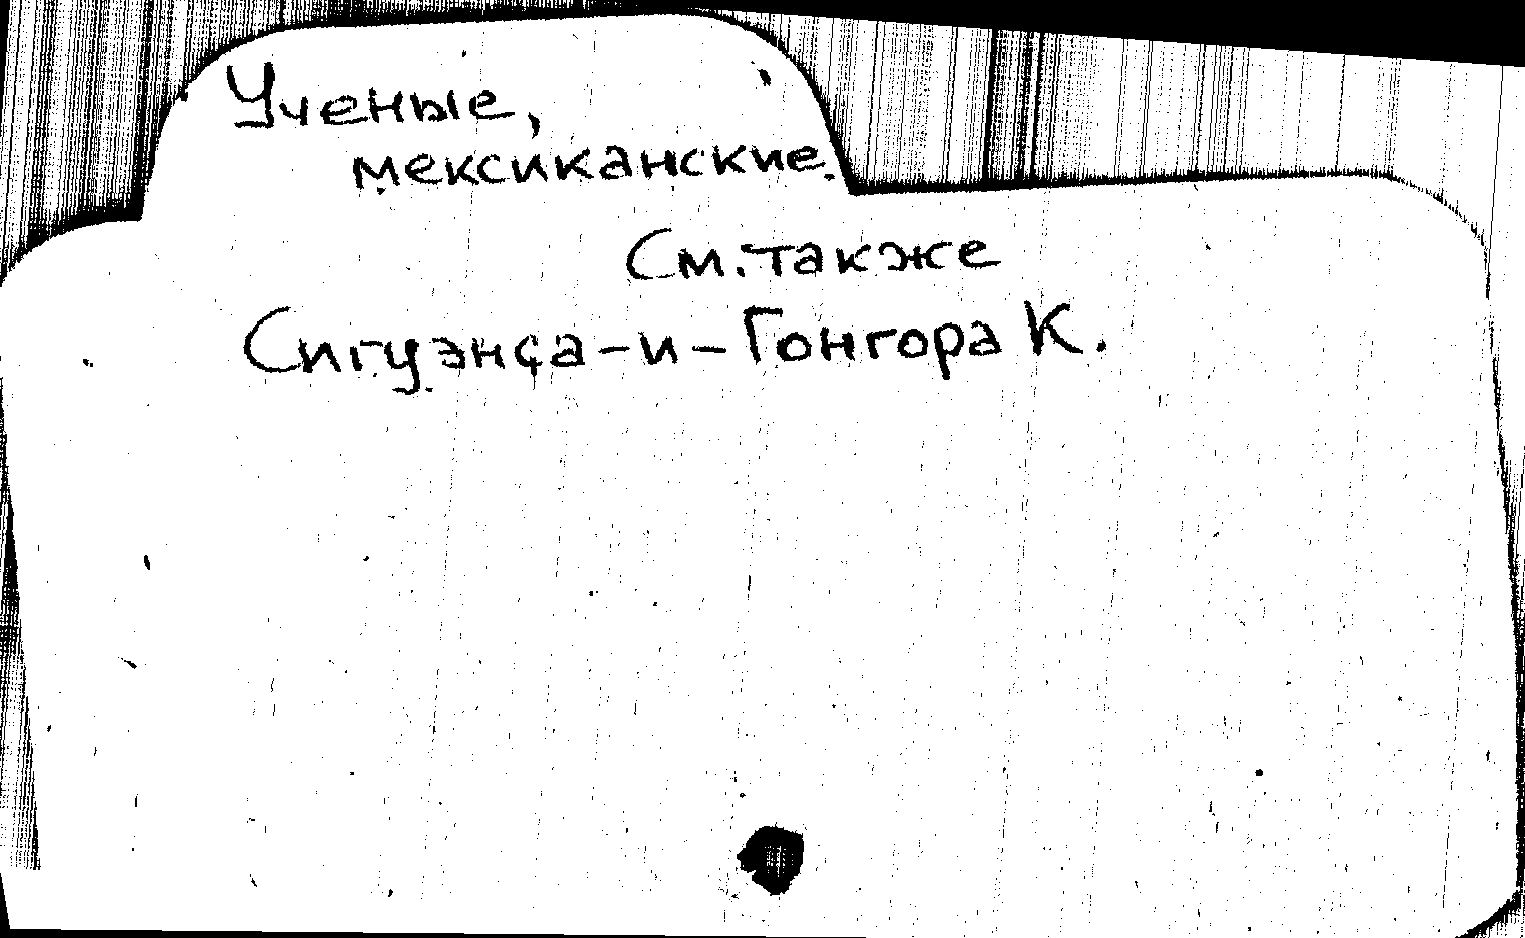 Ученые,
мексиканские.
См. также
Сигуэнса-и-Гонгора К.